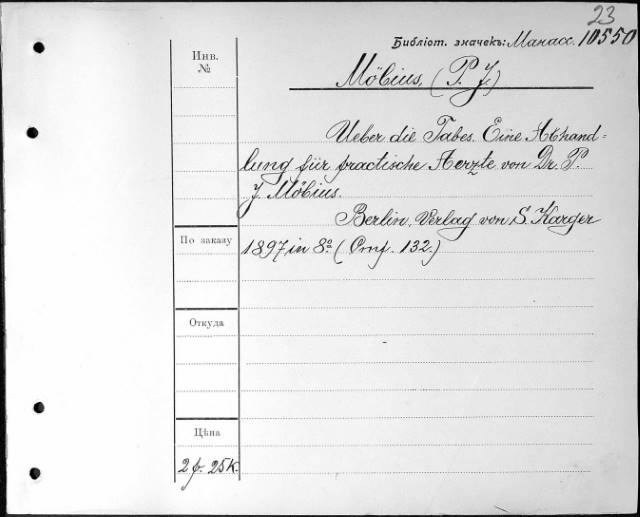 23
Библіот. значекъ: Манасс. 10550
Инв.
№
Möbius, (P. J.)
Ueber die Tabes. Eine Abhand=
lung für practische Aerzte von Dr. P.
J. Möbius.
Berlin, Verlag von S. Karger
По заказу
1897, in 8º. (Стр. 132.)
Откуда
Цѣна
2 р. 25 к.